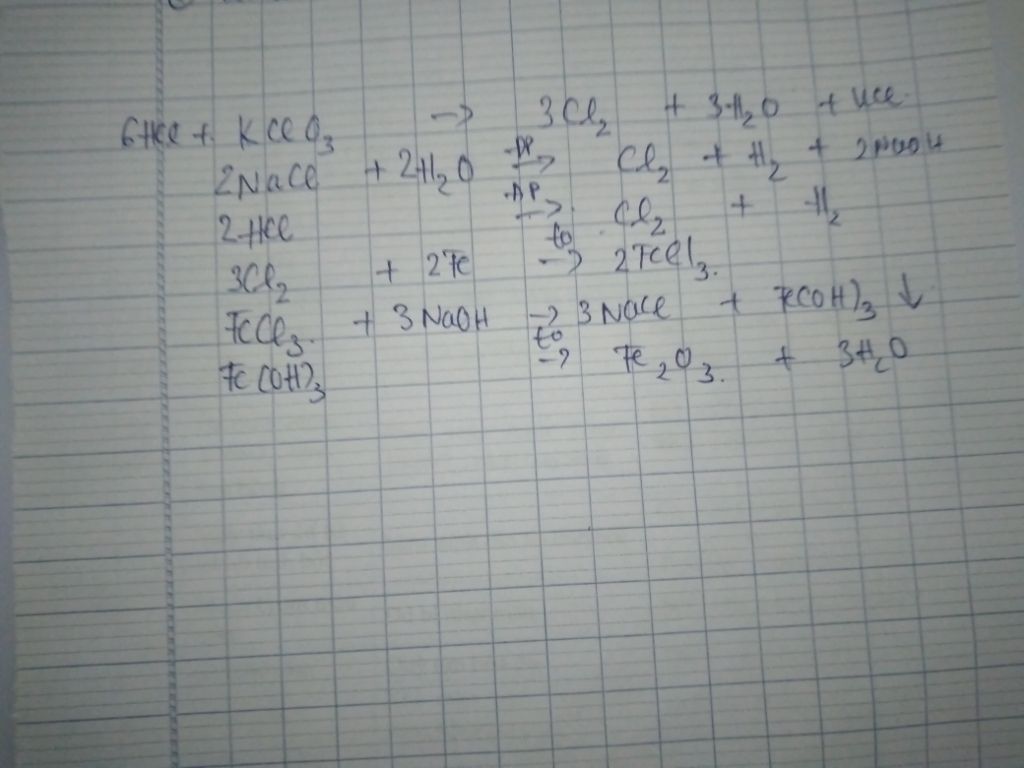 6HCl + KClO3 → 3Cl2 + 3H2O + KCl.
2NaCl + 2H2O -đp→ Cl2 + H2 + 2NaOH
2HCl -đp→ Cl2 + H2
3Cl2 + 2Fe -to→ 2FeCl3.
FeCl3. + 3NaOH → 3NaCl + Fe(OH)3 ↓
Fe(OH)3 -to→ Fe2O3. + 3H2O